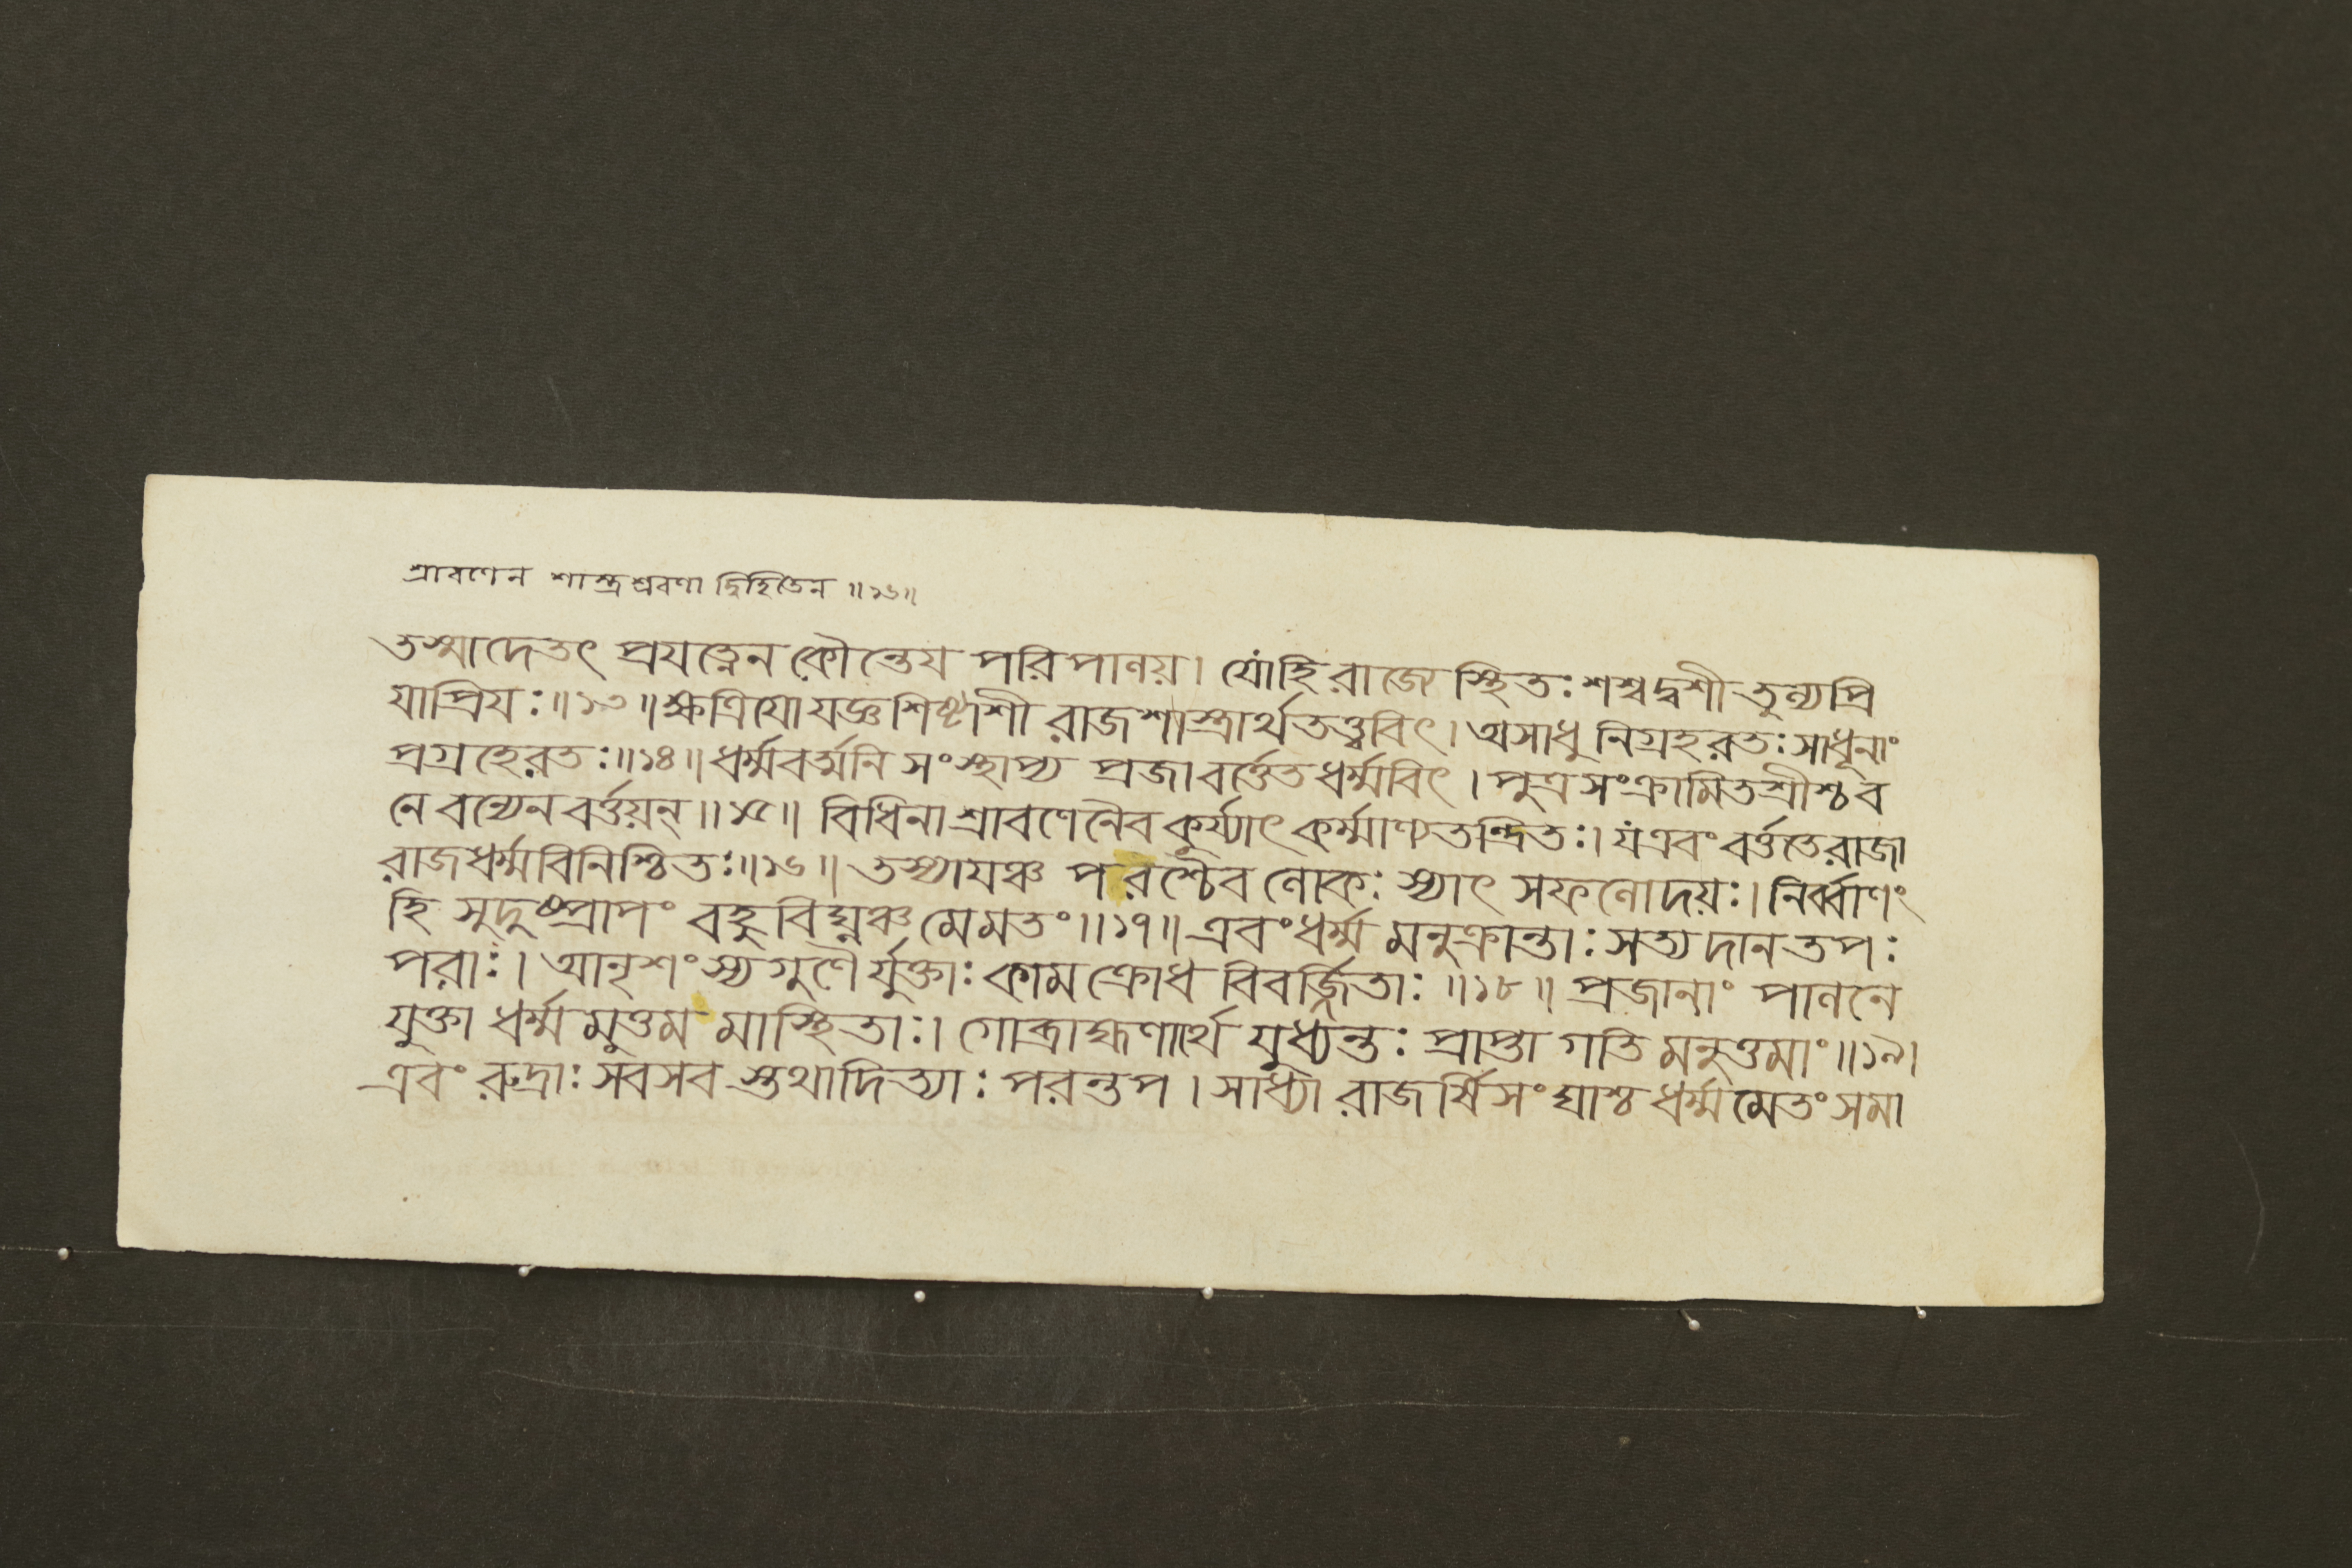 শ্রাবণেন শাস্ত্রশ্রবণাদ্বিহিতেন ॥১৬॥
তস্মাদেতৎ প্রযত্নেন কৌন্তেয পরিপাণয়। যোহি রাজ্যে স্থিতঃ শশ্বদ্বশী তুন্যপ্রি
যাপ্রিযঃ॥১৩॥ ক্ষত্রিযো যজ্ঞশিষ্টাশী রাজশাস্ত্রার্থতত্ত্ববিৎ। অসাধু নিগ্রহরতঃ সাধূনাং
প্রগ্রহেরতঃ॥১৪॥ ধর্ম্মবর্ত্মনি সংস্থাপ্য প্রজা বর্ত্তেত ধর্ম্মবিৎ। পুত্রসংক্রামিতশ্রীশ্চ ব
নে বন্যেন বর্ত্তয়ন্॥১৫॥ বিধিনা শ্রাবণেনৈব কুর্য্যাৎ কর্ম্মাণ্যতন্দ্রিতঃ। যএবং বর্ত্ততে রাজা
রাজধর্ম্মবিনিশ্চিতঃ॥১৬॥ তস্যাযঞ্চ পরশ্চৈব ণোকঃ স্যাৎ সফণোদয়ঃ। নির্ব্বাণং
হি সুদুষ্প্রাপং বহুবিঘ্নঞ্চ মে মতং॥১৭॥ এবং ধর্ম্ম মনুক্রান্তাঃ সত্য দান তপঃ
পরাঃ। আনৃশংস্য গুণৈর্যুক্তাঃ কাম ক্রোধ বিবর্জ্জিতাঃ ॥১৮॥ প্রজানাং পাণনে
যুক্তা ধর্ম্ম মুত্তম মাস্থিতাঃ। গোব্রাহ্মণার্থে যুধ্যন্তঃ প্রাপ্তা গতি মনুত্তমাং॥১৯।
এবং রুদ্রাঃ সবসব স্তথাদিত্যাঃ পরন্তপ। সাধ্যা রাজর্ষিসংঘাশ্চ ধর্ম্মমেতং সমা